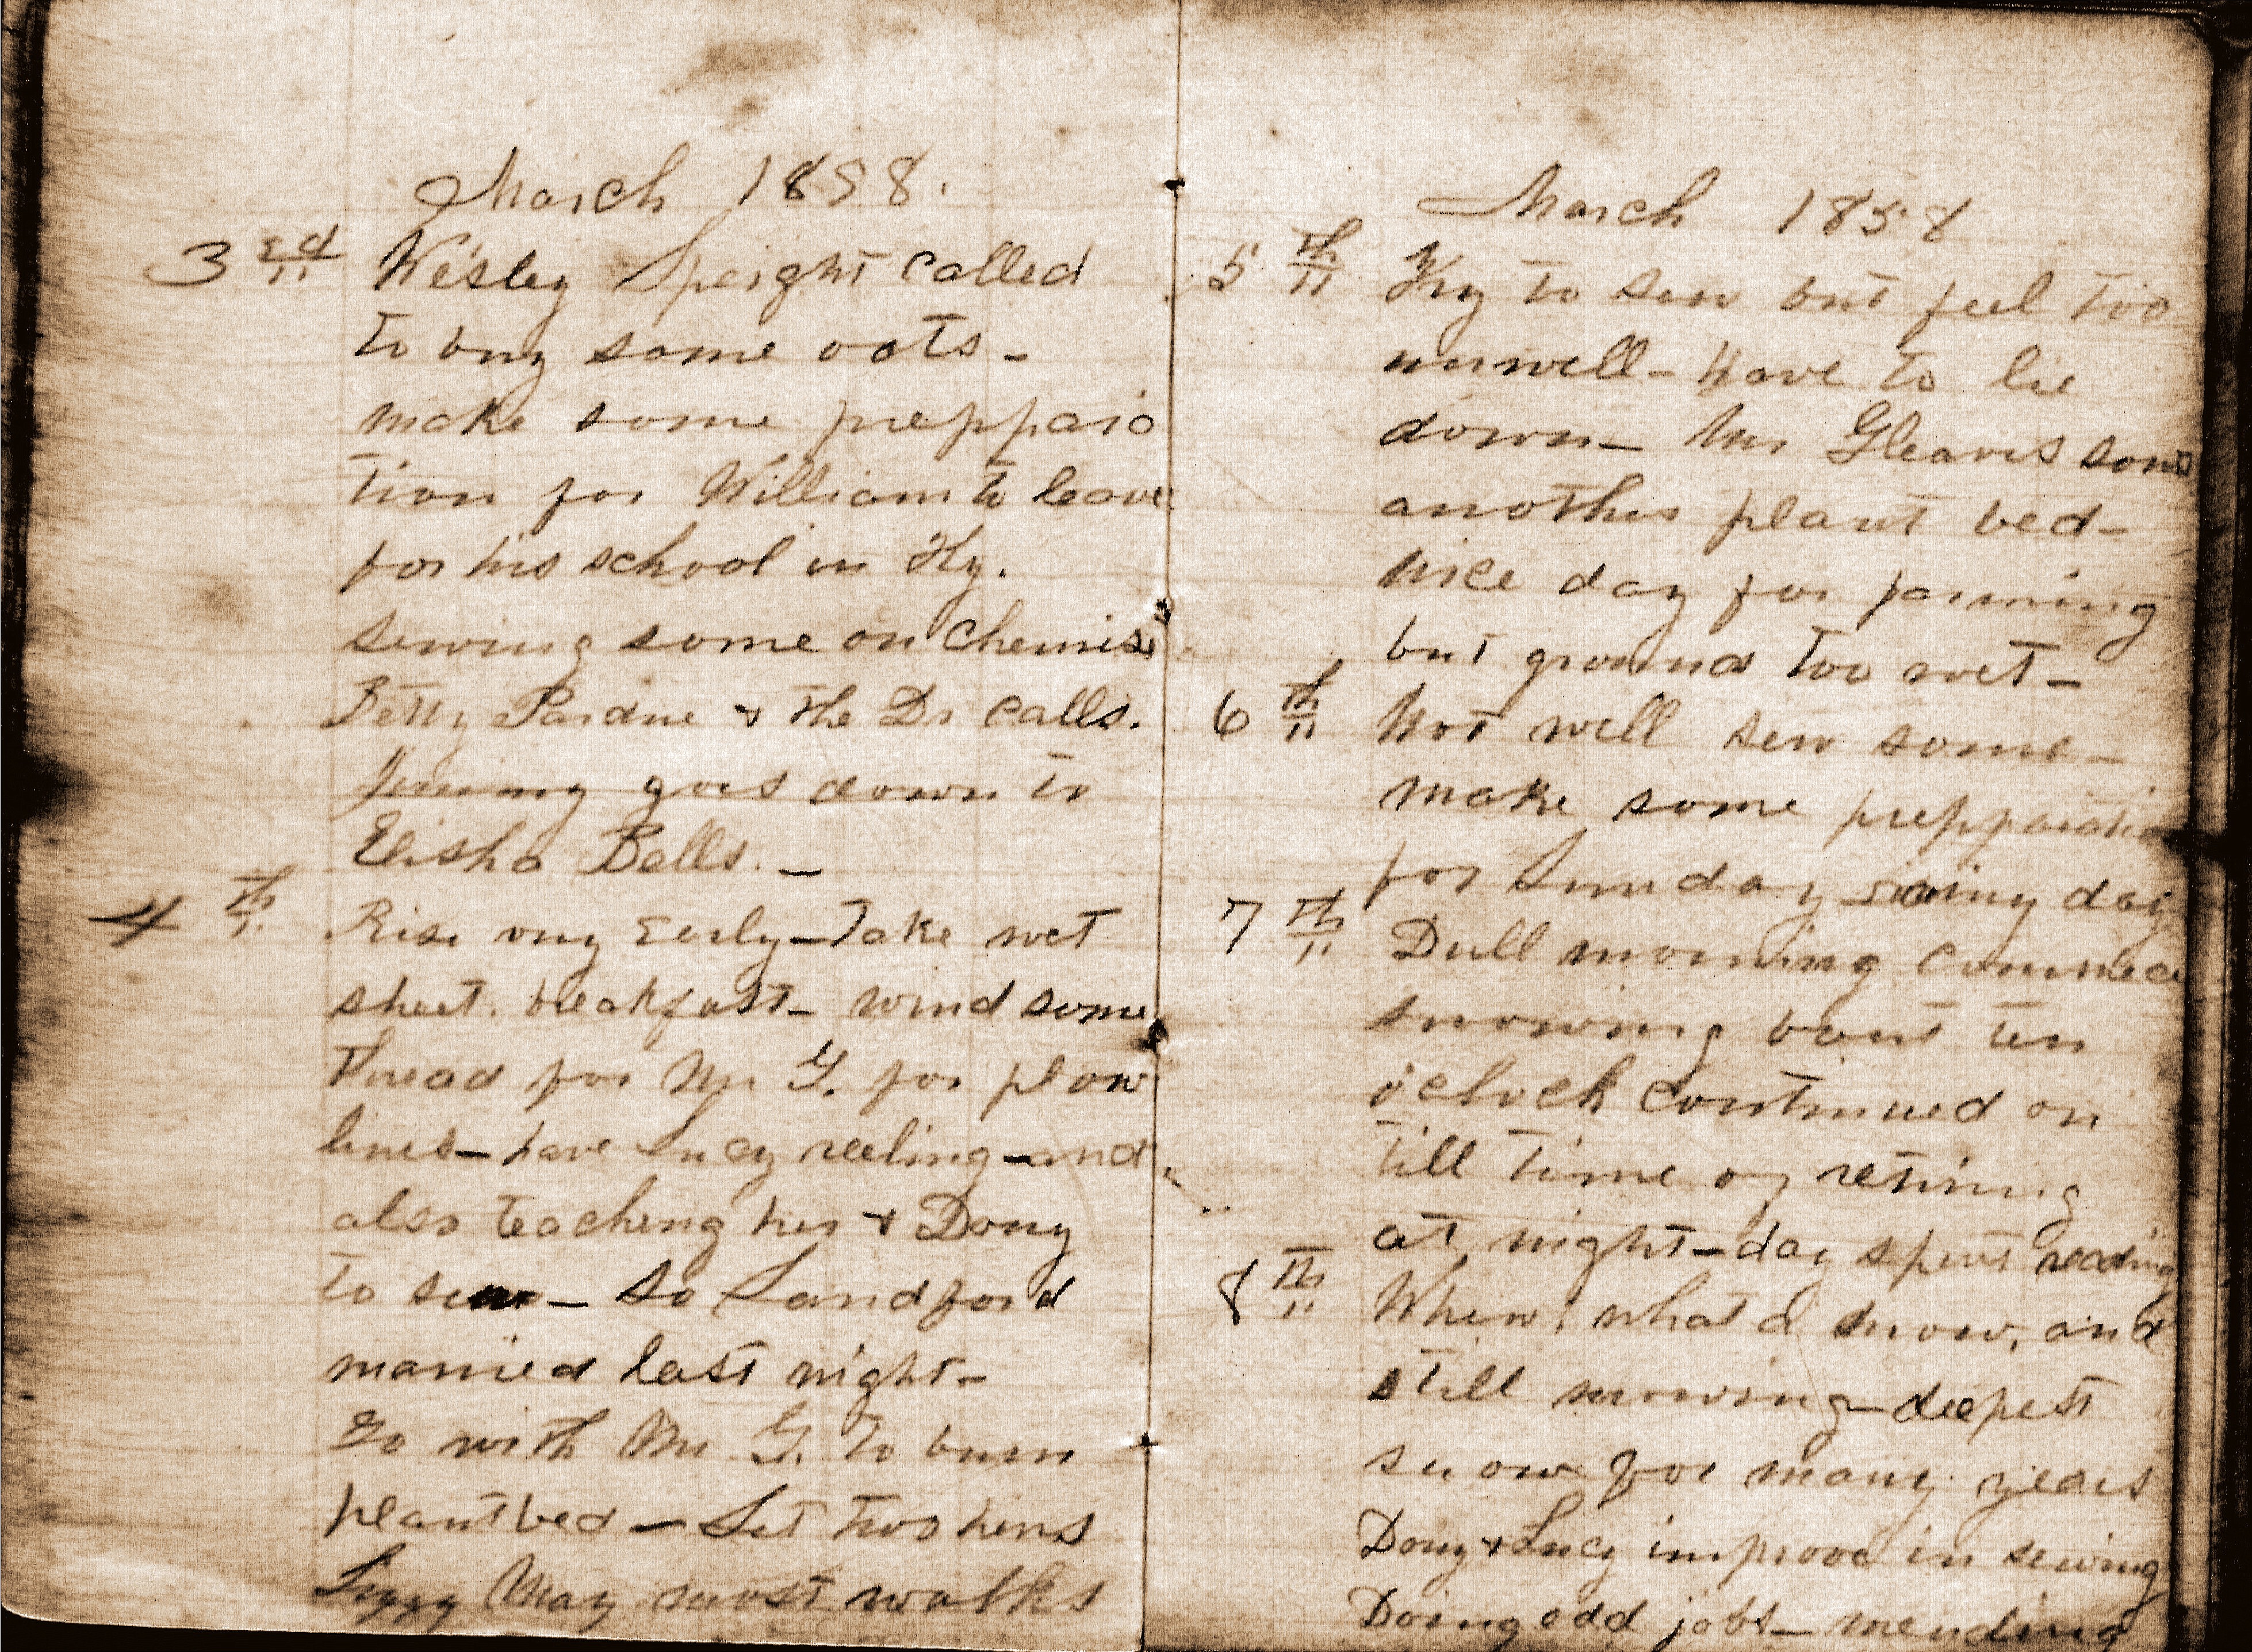 March 1858.
3rd Wesley Speight called
to buy some oats -
make some preppara
tion for William to leave
for his school in Ky.
sewing some on chemise
Betty Pardue & the Dr calls.
Jimmy goes down to
Elisha Bells. -
4th Rise very Early - Take wet
sheet. breakfast - wind some
thread for Mr G. for plow
lines - have Lucy reeling - and
also teaching her & Dony
to sew - So Landford
married last night -
Go with Mr G. to burn
plant bed - Set two hens
May most walks
March 1858
5th Try to sew but feel too
unwell - have to lie
down - Mr Gleaves sows
another plant bed -
nice day for farming
but ground too wet -
6th Not well sew some -
make some prepparation
for Sunday day
7th Dull morning commece
snowing bout ten
oclock continued on
till time of retiring
at night - day spent reading
8th Whew! what a snow, and
still snowing - deepest
snow for many years
Dony & Lucy improve in sewing
Doing odd jobs - mending